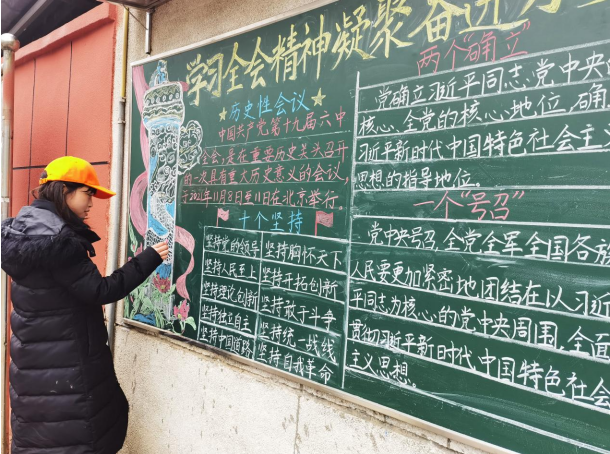 学习全会精神凝聚奋进力
历史性会议
中国共产党第十九届六中
全会,是在重要历史关头召开
的一次具有重大历史意义的会议,
于2021年11月8日至11日在北京举行.
十个坚持
坚持党的领导 坚持胸怀天下
坚持人民至上 坚持开拓创新
坚持理论创新 坚持敢于斗争
坚持独立自主 坚持统一战线
坚持中国道路 坚持自我革命
两个“确立”
党确立习近平同志党中央的
核心、全党的核心地位,确
习近平新时代中国特色社会主
思想的指导地位.
一个“号召”
党中央号召,全党全军全国各族
人民要更加紧密地团结在以习近
平同志为核心的党中央周围,全面
贯彻习近平新时代中国特色社会
主义思想.